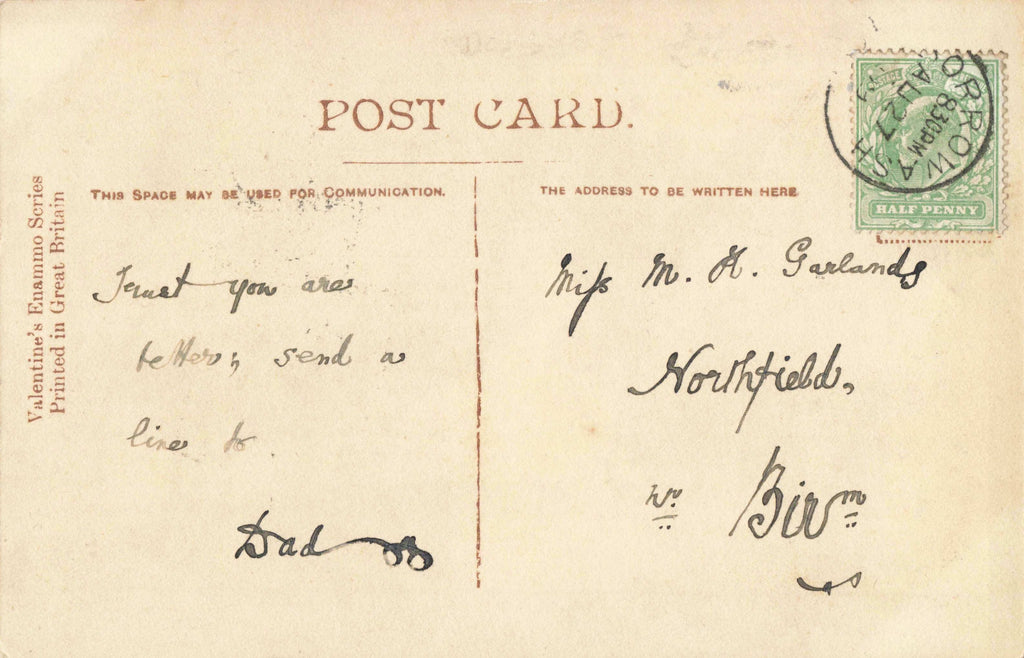 POST CARD.
THIS SPACE MAY BE USED FOR COMMUNICATION.
THE ADDRESS TO BE WRITTEN HERE
Valentine's Enammo Series
Printed in Great Britain
BORROWASH
8 30 PM
AU 27
HALF PENNY
Trust you are
better, send a
line to
Dad
Miss M. H. Garlands
Northfield,
nr Birm